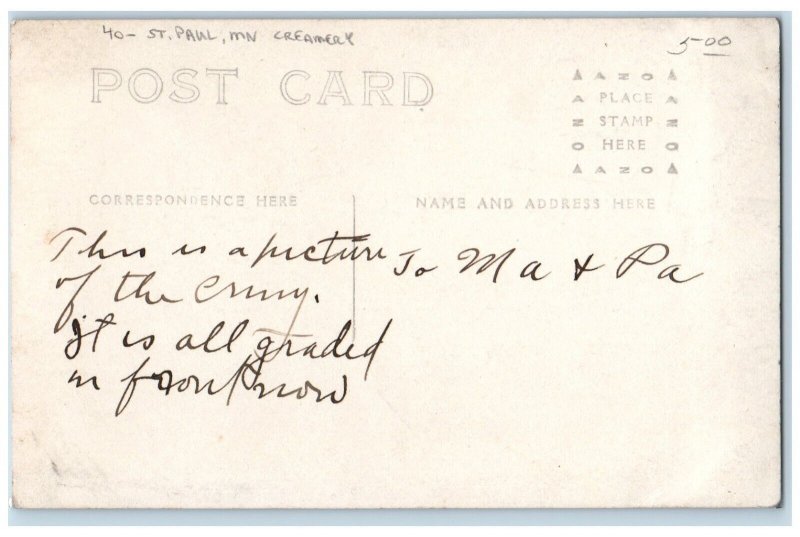 40- ST. PAUL, MN CREAMERY
5-00
POST CARD
AZO
PLACE
STAMP
HERE
AZO
CORRESPONDENCE HERE
NAME AND ADDRESS HERE
This is a picture
of the Crmy.
It is all graded
in front now
To Ma & Pa